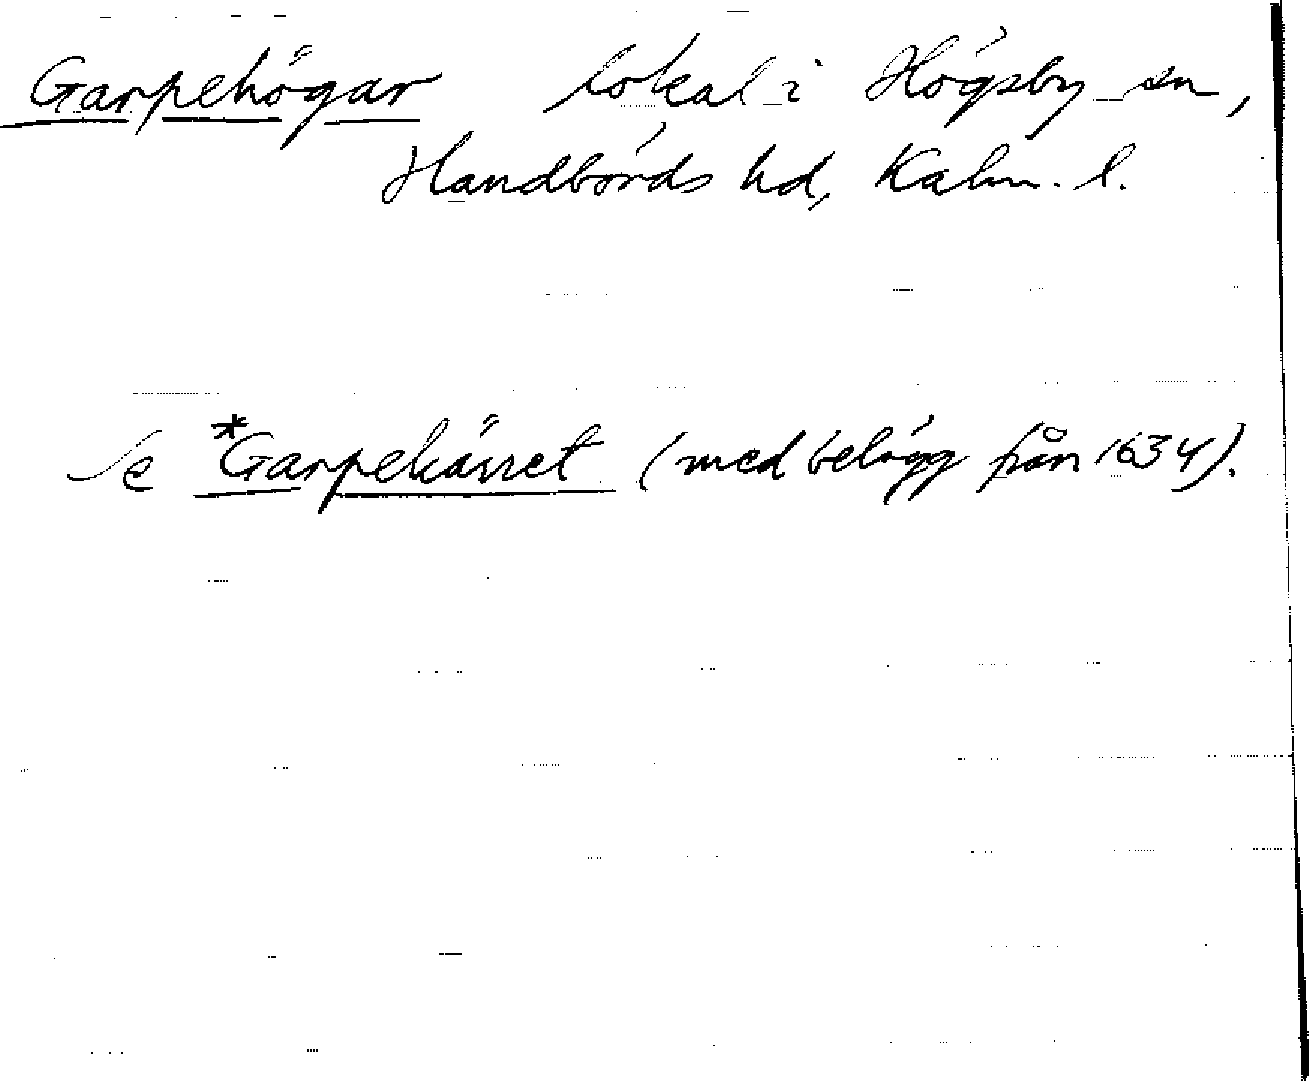 Garpehögar lokal i Högsby sn,
Handbörds hd, Kalm. l.
Se *Garpekärret (med belägg från 1634).